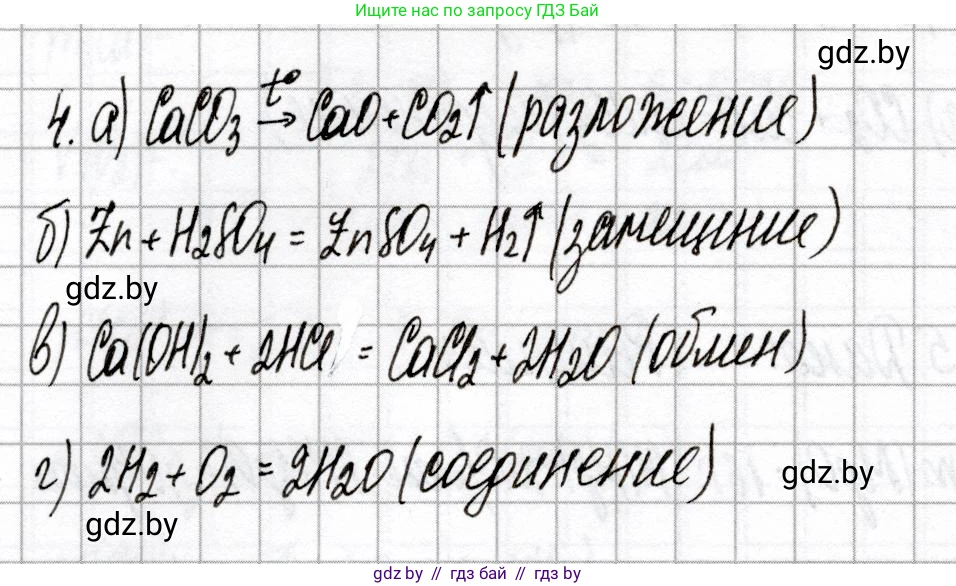 Ищите нас по запросу ГДЗ Бай
gdz.by
4. а) CaCO₃ →t° CaO + CO₂↑ (разложение)
б) Zn + H₂SO₄ = ZnSO₄ + H₂↑ (замещение)
gdz.by
в) Ca(OH)₂ + 2HCl = CaCl₂ + 2H₂O (обмен)
г) 2H₂ + O₂ = 2H₂O (соединение)
gdz.by
gdz.by
gdz.by // гдз бай // гдз by